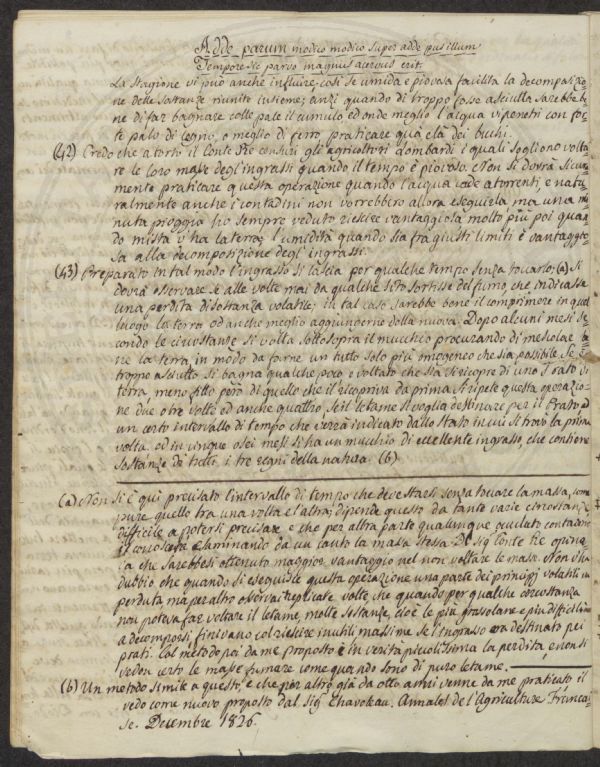 Adde parum modico modico super adde pusillum
Tempore sic parvo magnus acervus erit.
La Stagione vi può anche influire, così se umida e piovosa facilita la decomposizio
ne delle sostanze riunite insieme; anzi quando di troppo fosse asciutta sarebbe be
ne di far bagnare colle pale il cumulo, ed onde meglio l'acqua vi penetri con for
te palo di legno, o meglio di ferro praticare quà e là dei buchi.
(42) Credo che a torto il Conte Re censuri gli agricoltori Lombardi i quali sogliono volta
re le loro masse degl'ingrassi quando il tempo è piovoso. Non si dovrà sicura
mente praticare questa operazione quando l'acqua cade a torrenti, e natu
ralmente anche i contadini non vorrebbero allora eseguirla ma una mi
nuta pioggia ho sempre veduto riescire vantaggiosa, molto più poi quan
do mista v'ha la terra; l'umidità quando sia fra giusti limiti è vantaggio
sa alla decomposizione degl'ingrassi.
(43) Preparato in tal modo l'ingrasso si lascia per qualche tempo senza toccarlo: (a) Si
dovrà osservare se alle volte mai da qualche sito sortisse del fumo, che indicasse
una perdita di sostanza volatile; in tal caso sarebbe bene il comprimere in quel
luogo la terra od anche meglio aggiungerne della nuova. Dopo alcuni mesi se
condo le circostanze si volta sottosopra il mucchio procurando di mescolar be
ne la terra, in modo da farne un tutto solo più omogeneo che sia possibile. Se è
troppo asciutto si bagna qualche poco e voltato che sia si ricopre di uno strato di
terra, meno fitto però di quello che il ricopriva da prima. Si ripete questa operazio
ne due o tre volte ed anche quattro se il letame si voglia destinare per il Prato ad
un certo intervallo di tempo che verrà indicato dallo stato in cui si trovò la prima
volta. ed in cinque o sei mesi si ha un mucchio di eccellente ingrasso, che contiene
sostanze di tutti i tre regni della natura. (b)
(a) Non si è qui precisato l'intervallo di tempo che deve starsi senza toccare la massa, com
pure quello tra una volta e l'altra; dipende questo da tante varie circostanze
difficile a potersi precisare e che per altra parte qualunque oculato contadino
il conoscerà esaminando da un canto la massa stessa. Il Sig. Conte Re opina
ca che sarebbesi ottenuto maggior vantaggio nel non voltare le masse. Non v'ha
dubbio che quando si eseguisce questa operazione una parte dei principj volatili va
perduta, ma per altro osservai replicate volte che quando per qualche circostanza
non poteva far voltare il letame, molte sostanze, cioè le più grassolane e più difficili
a decomporsi finivano col riescire inutili massime se l'ingrasso era destinato pei
prati. Col metodo poi da me proposto è in verità piccolissima la perdita, e non si
vedon certo le masse fumare come quando sono di puro letame.
(b) Un metodo simile a questo, e che per altro già da otto anni venne da me praticato il
vedo come nuovo proposto dal Sig Chavoteau. Annales de l'Agriculture Francai
se. Decembre 1826.